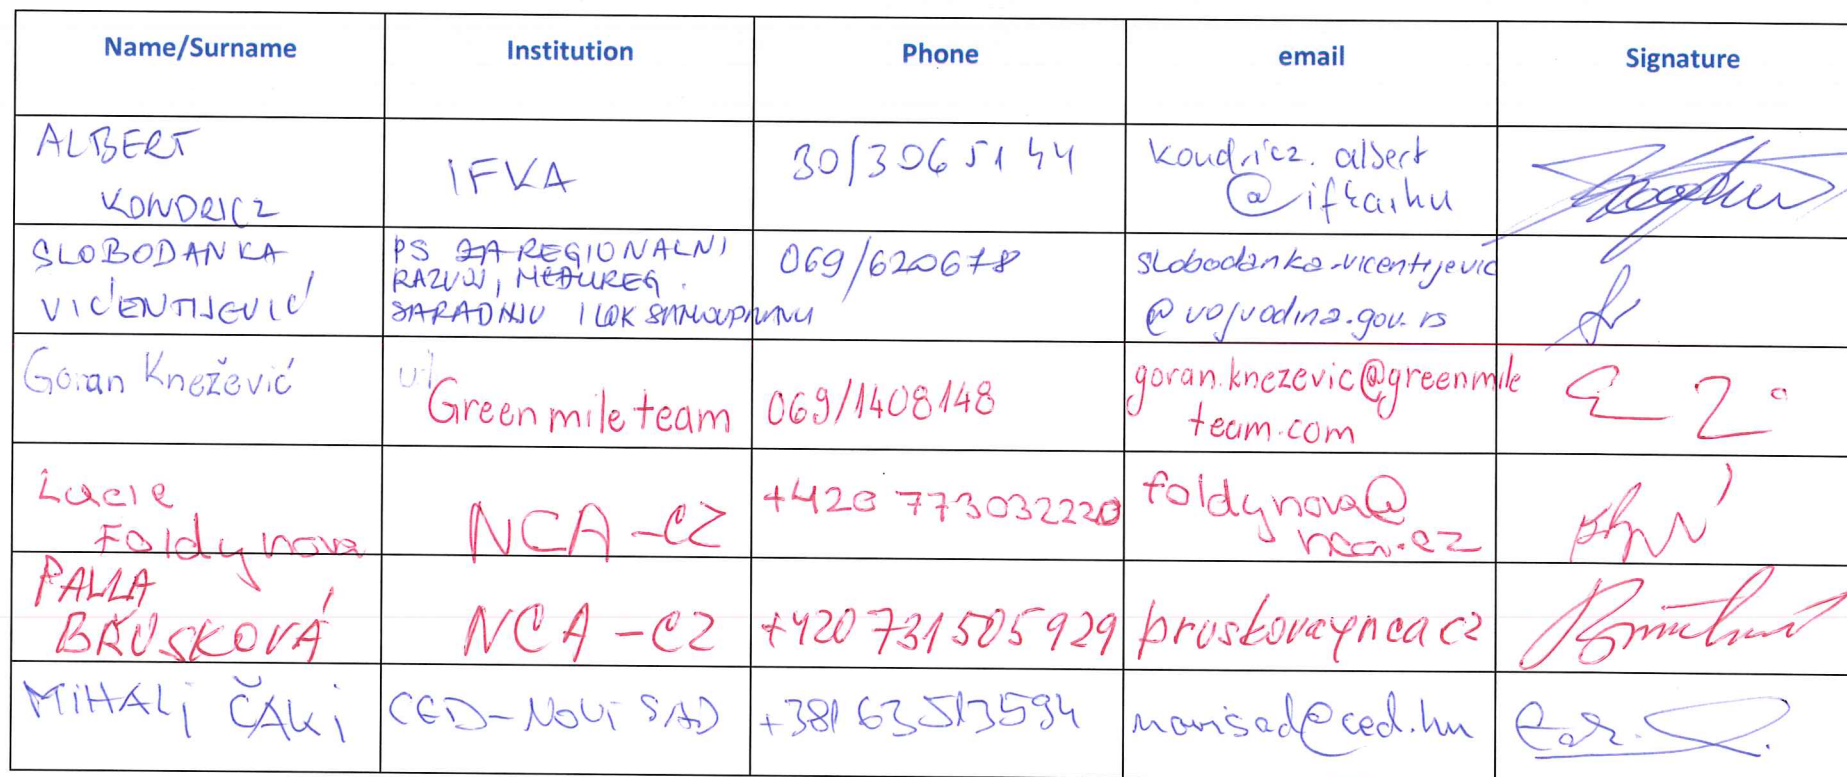 Name/Surname Institution Phone email Signature
ALBERT
KONDRICZ
IFKA
30/306 51 44
kondricz.albert
@ifka.hu
SLOBODANKA
VICENTIJEVIĆ
PS ZA REGIONALNI
RAZVOJ, MEĐUREG.
SARADNJU I LOK SAMOUPRAVU
069/620678
slobodanka.vicentijevic
@vojvodina.gov.rs
Goran Knežević
Green mile team
069/1408148
goran.knezevic@greenmile
team.com
Lucie
Foldynova
NCA-CZ
+420 773032220
foldynova@
nca.cz
PAVLA
BRUSKOVÁ
NCA-CZ
+420 731505929
MIHALJ ČAKI
CED-NOVI SAD
+381 63 513594
novisad@ced.hu